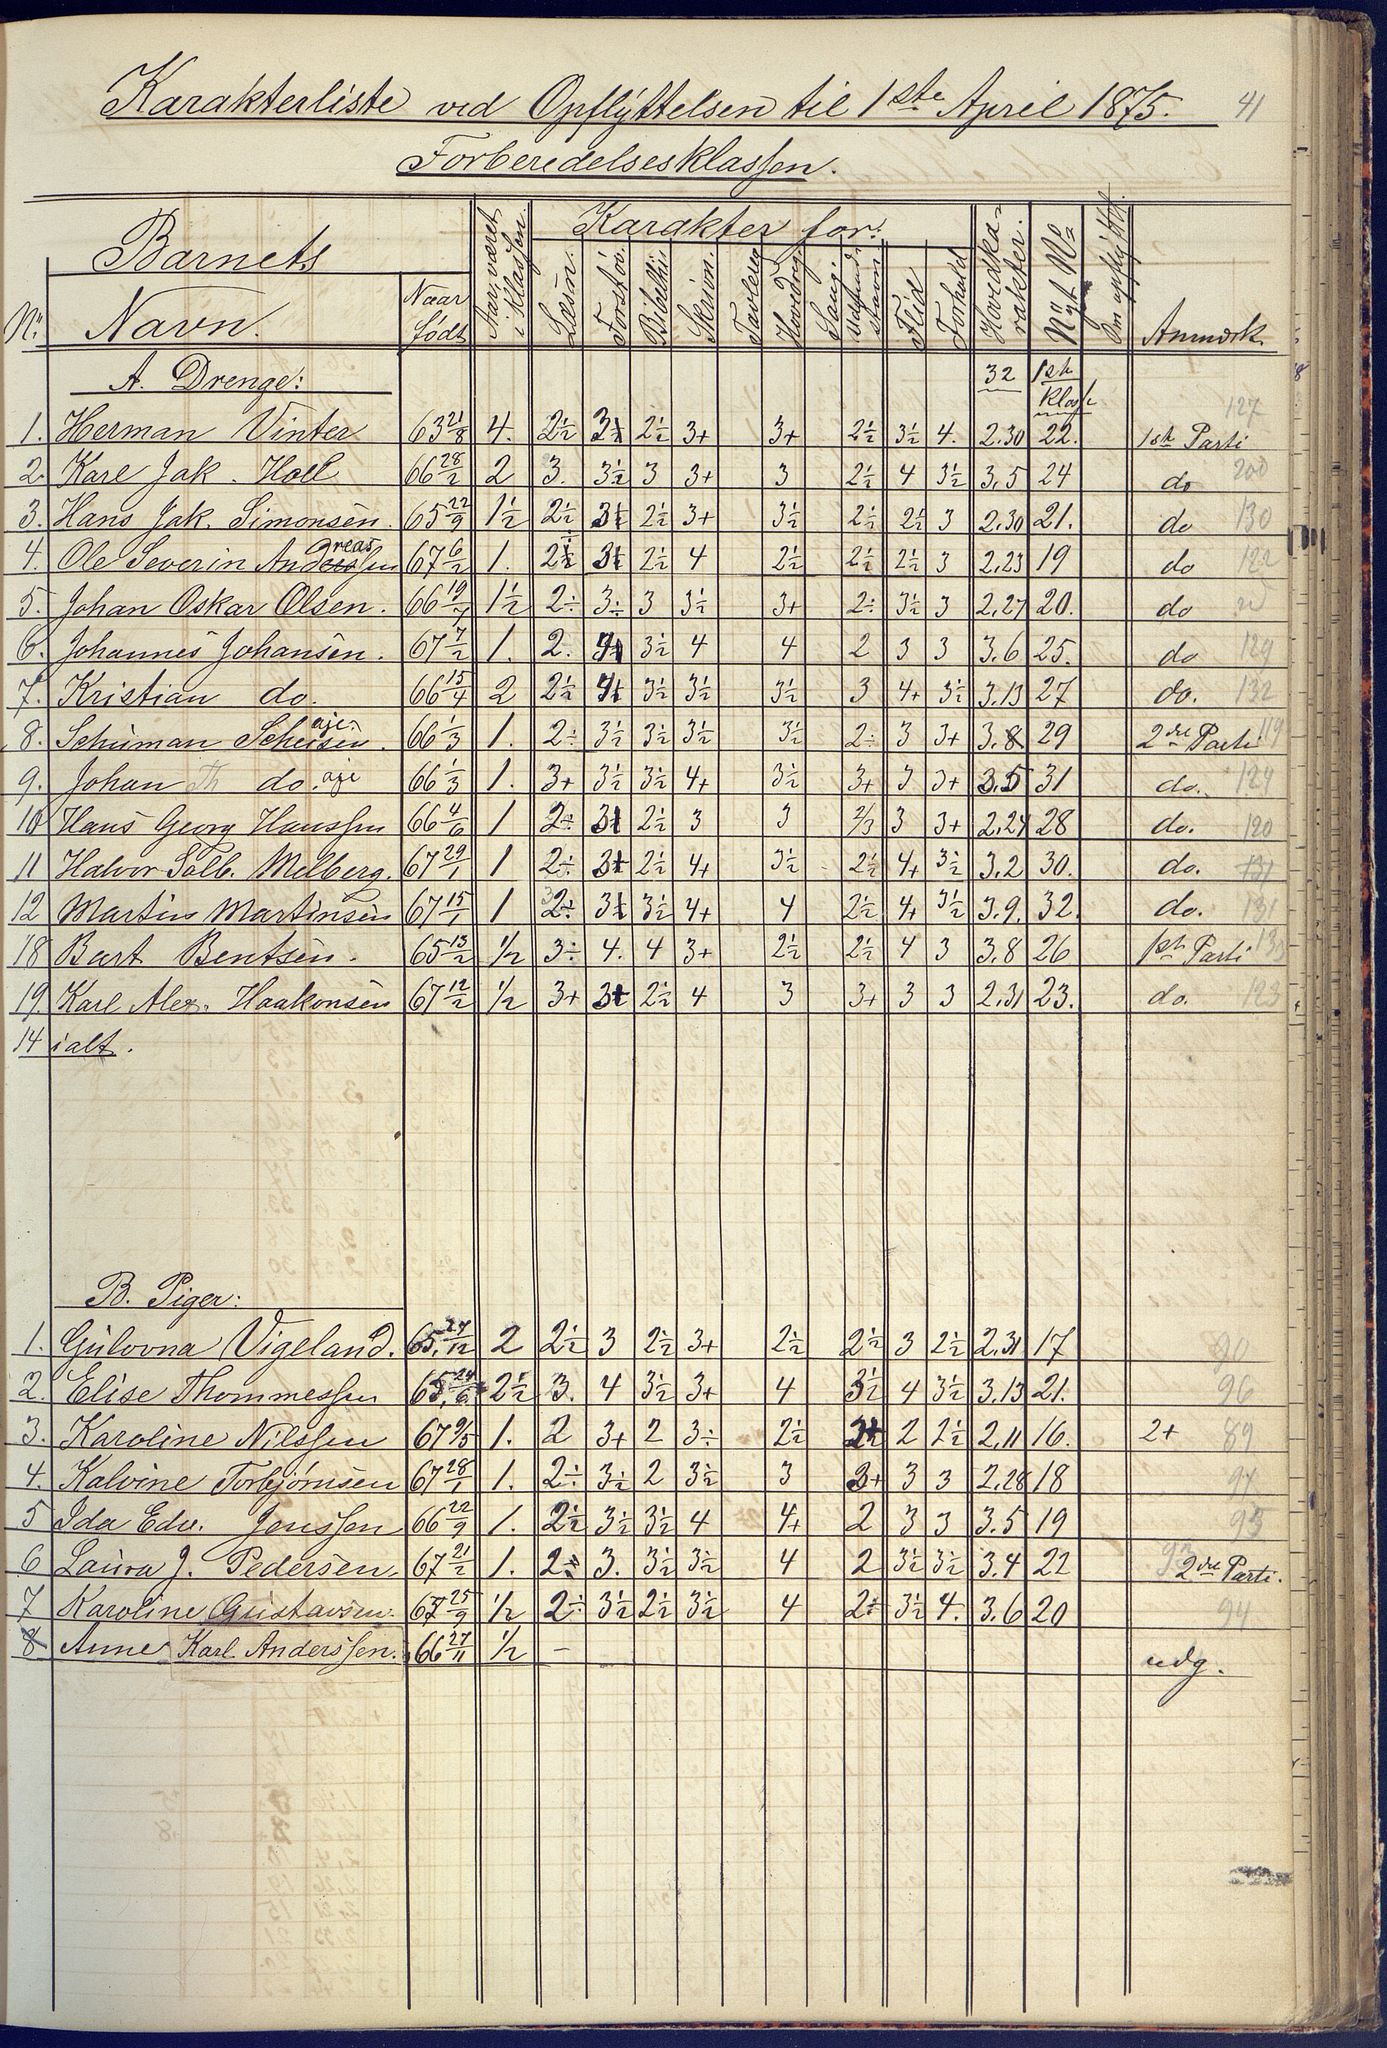 Karakterliste ved Opflyttelsen til 1ste April 1875. 41
Forberedelsesklassen.
Barnets
Navn.
Nr.
Naar født
Aar, været i Klassen
Karakter for:
Læsn. Forstov. Bibelhi Skrivn. Tavlereg Hovedreg Sang. Udenad Flid Forhold
Hovedkarakter.
Nyt No
Om opflyttet
Anmærk
A. Drenge: 32 1ste Klasse
127
1. Herman Vinter 63 21/8 4. 2½ 3½ 2½ 3+ 3+ 2½ 3½ 4. 2.30 22. 1ste Parti
2. Karl Jak. Holl 66 28/2 2 3. 3½ 3 3+ 3 2½ 4 3½ 3.5 24 do 200
3. Hans Jak. Simonsen. 65 22/9 1½ 2½ 3½ 2½ 3+ 3½ 2½ 2½ 3 2.30 21. do 130
4. Ole Severin Andreassen 67 6/2 1. 2½ 3½ 2½ 4 2½ 2½ 2½ 3 2.23 19 do 122
5. Johan Oskar Olsen. 66 19/7 1½ 2÷ 3÷ 3 3½ 3+ 2÷ 3½ 3 2.27 20. do
6. Johannes Johansen. 67 7/2 1. 2. 4 3½ 4 4 2 3 3 3.6 25. do 129
7. Kristian do. 66 15/4 2 2½ 4 3½ 3½ 3½ 3 4+ 3½ 3.13 27 do. 132
8. Schuman Scheisen. aje 66 1/3 1. 2÷ 3½ 3½ 3½ 3½ 2÷ 3 3+ 3.8 29 2den Parti 119
9. Johan Th do. aje 66 1/3 1. 3+ 3½ 3½ 4+ 3½ 3+ 3 3+ 3.5 31 do. 124
10 Hans Georg Hanssen 66 4/6 1 2÷ 3+ 2½ 3 3 2/3 3 3+ 2.24 28 do. 120
11 Halvor Solb. Melberg. 67 29/1 1 2÷ 3+ 2½ 4+ 3½ 2½ 4+ 3½ 3.2 30. do. 131
12 Martin Martinsen 67 15/1 1 2÷ 3½ 3½ 4+ 4 2½ 4+ 3½ 3.9. 32. do. 131
18 Bart Bentsen. 65 13/2 ½ 3÷ 4. 4 3+ 2½ 2½ 4 3 3.8 26 1ste Parti
19. Karl Alex. Haakonsen 67 12/2 ½ 3+ 3+ 2½ 4 3 3+ 3 3 2.31 23. do. 123
14 ialt.
B. Piger:
1. Gulovna Vigeland. 65. 27/12 2 2½ 3 2½ 3+ 2½ 2½ 3 2½ 2.31 17 90
2. Elise Thommessen 65. 24/6 2½ 3. 4 3½ 3+ 4 3½ 4 3½ 3.13 21. 96
3. Karoline Nilssen 67 9/5 1. 2 3+ 2 3÷ 2½ 2½ 2 2½ 2.11 16. 2+ 89
4. Kalvine Torbjørnsen 67 28/1 1. 2÷ 3½ 2 3½ 3 3+ 3 3 2.28 18
5 Ida Edv. Jenssen 66 22/9 1. 2½ 3½ 3½ 4 4+ 2 3 3 3.5 19 95
6 Laura J. Pedersen. 67 21/2 1. 2÷ 3. 3½ 3½ 4 2 3½ 3½ 3.4 22 93 2den Parti.
7 Karoline Gustavsen. 67 25/9 ½ 2÷ 3½ 2½ 3½ 4 2÷ 3½ 4. 3.6 20 94
8 Anne Karl. Anderssen. 66 27/11 ½ – udg.